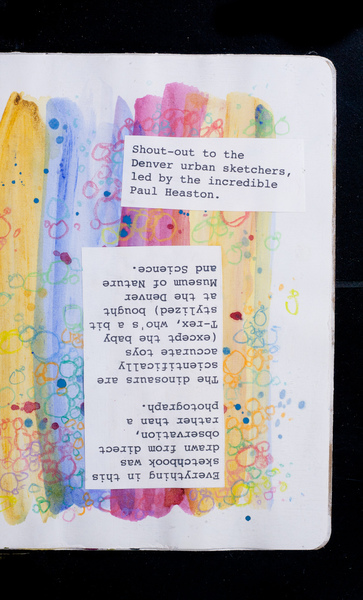 Shout-out to the
Denver urban sketchers,
led by the incredible
Paul Heaston.
Everything in this
sketchbook was
drawn from direct
observation,
rather than a
photograph.
The dinosaurs are
scientifically
accurate toys
(except the baby
T-rex, who's a bit
stylized) bought
at the Denver
Museum of Nature
and Science.